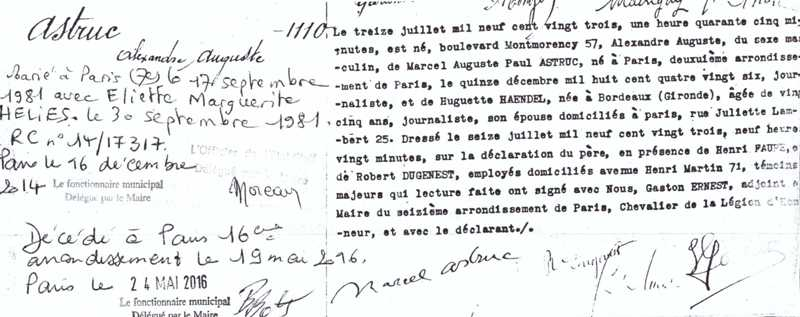 Astruc
Alexandre Auguste
Marié à Paris (7e) le 17 septembre
1981 avec Eliette Marguerite
HELIES. le 30 septembre 1981.
RC n° 14/17317.
Paris le 16 décembre
2014
Le fonctionnaire municipal
Délégué par le Maire
Moreau
Décédé à Paris 16ème
arrondissement le 19 mai 2016.
Paris le 24 MAI 2016
Le fonctionnaire municipal
Délégué par le Maire
-1110-
Le treize juillet mil neuf cent vingt trois, une heure quarante cinq mi
nutes, est né, boulevard Montmorency 57, Alexandre Auguste, du sexe mas
culin, de Marcel Auguste Paul ASTRUC, né à Paris, deuxième arrondisse-
ment de Paris, le quinze décembre mil huit cent quatre vingt six, jour-
naliste, et de Huguette HAENDEL, née à Bordeaux (Gironde), âgée de ving
cinq ans, journaliste, son épouse domiciliés à paris, rue Juliette Lam-
bert 25. Dressé le seize juillet mil neuf cent vingt trois, neuf heures
vingt minutes, sur la déclaration du père, en présence de Henri FAURE, e
de Robert DUGENEST, employés domiciliés avenue Henri Martin 71, témoins
majeurs qui lecture faite ont signé avec Nous, Gaston ERNEST, adjoint a
Maire du seizième arrondissement de Paris, Chevalier de la Légion d'Hon
-neur, et avec le déclarant./.
Marcel Astruc